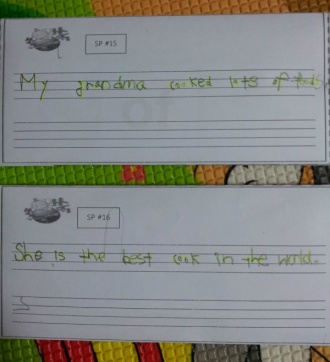 SP #15
My grandma cooked lots of foods
SP #16
She is the best cook in the world.
S